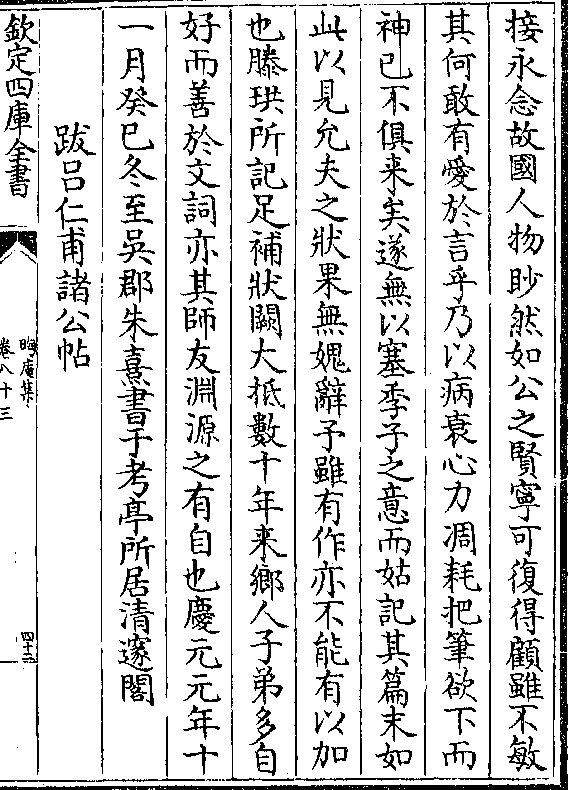 接永念故國人物眇然如公之賢寧可復得顧雖不敏
其何敢有愛於言乎乃以病衰心力凋耗把筆欲下而
神已不俱来矣遂無以塞季子之意而姑記其篇末如
此以見允夫之狀果無媿辭予雖有作亦不能有以加
也滕珙所記足補狀闕大抵數十年来鄉人子弟多自
好而善於文詞亦其師友淵源之有自也慶元元年十
一月癸巳冬至吳郡朱熹書于考亭所居清邃閣
跋呂仁甫諸公帖
欽定四庫全書
晦庵集
卷八十三
四十三